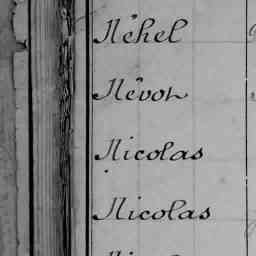 Néhel
Névot
Nicolas
Nicolas